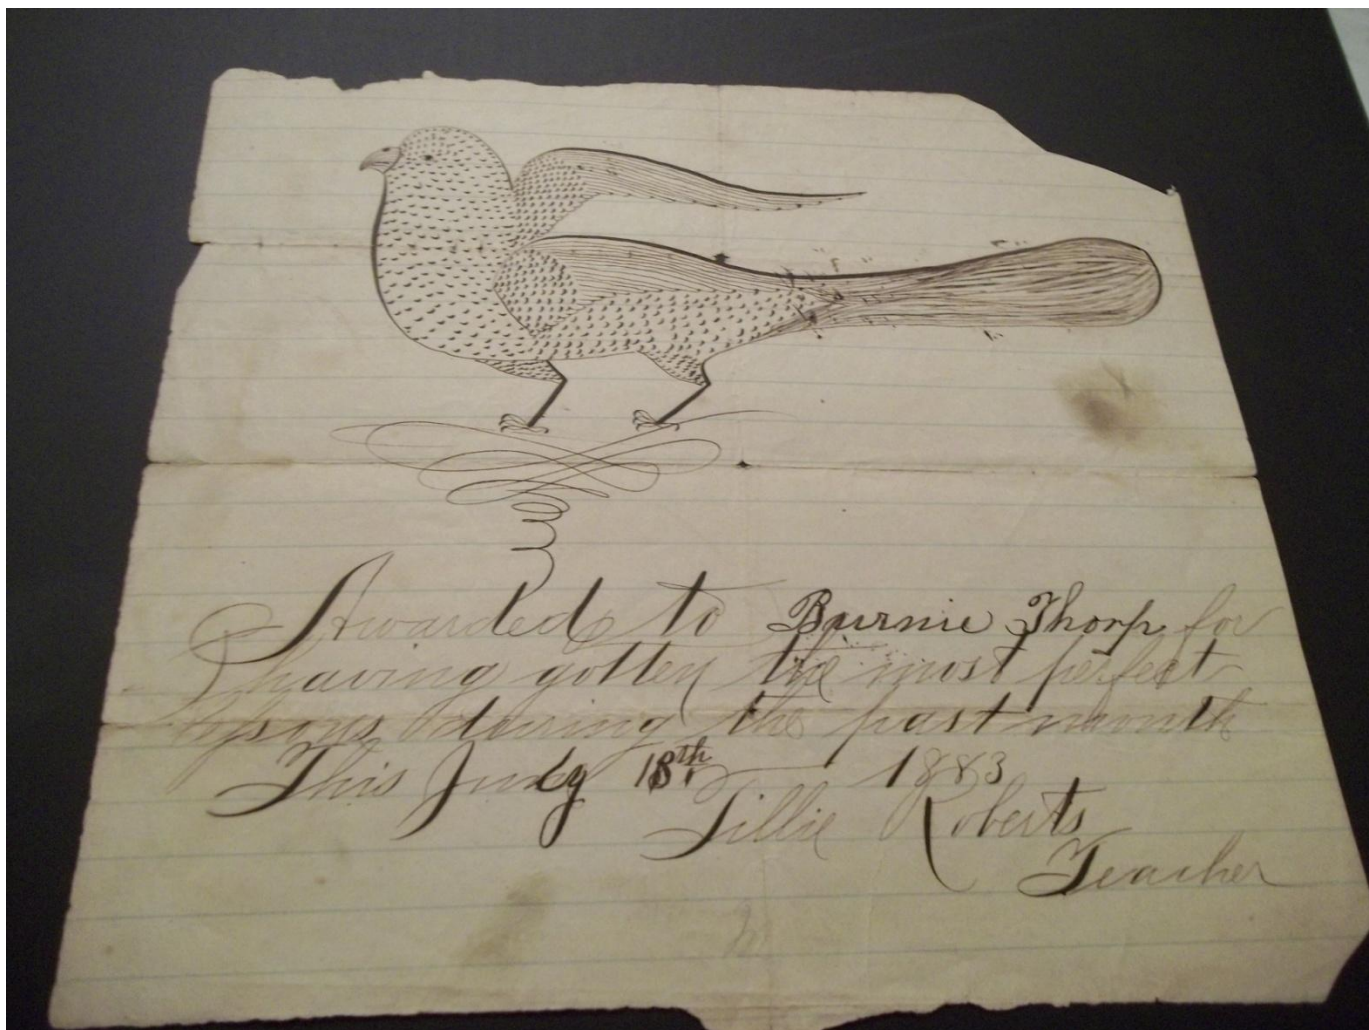 Awarded to Burnie Thorp for
having gotten the most perfect
lessons during the past month
This July 18th 1883
Tillie Roberts
Teacher